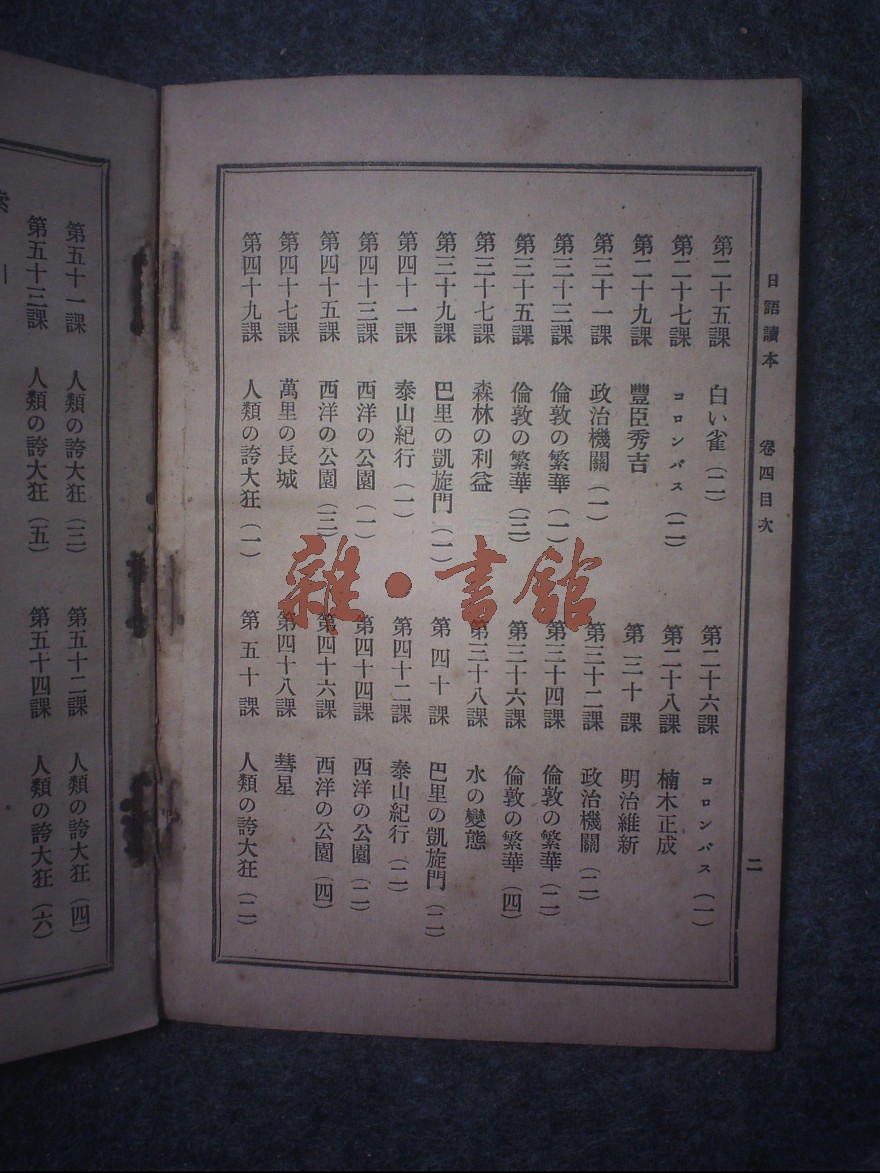 日語讀本　卷四目次　二
第二十五課　白い雀（二）
第二十六課　コロンバス（一）
第二十七課　コロンバス（二）
第二十八課　楠木正成
第二十九課　豐臣秀吉
第三十課　明治維新
第三十一課　政治機關（一）
第三十二課　政治機關（二）
第三十三課　倫敦の繁華（一）
第三十四課　倫敦の繁華（二）
第三十五課　倫敦の繁華（三）
第三十六課　倫敦の繁華（四）
第三十七課　森林の利益
第三十八課　水の變態
第三十九課　巴里の凱旋門（一）
第四十課　巴里の凱旋門（二）
第四十一課　泰山紀行（一）
第四十二課　泰山紀行（二）
第四十三課　西洋の公園（一）
第四十四課　西洋の公園（二）
第四十五課　西洋の公園（三）
第四十六課　西洋の公園（四）
第四十七課　萬里の長城
第四十八課　彗星
第四十九課　人類の誇大狂（一）
第五十課　人類の誇大狂（二）
第五十一課　人類の誇大狂（三）
第五十二課　人類の誇大狂（四）
第五十三課　人類の誇大狂（五）
第五十四課　人類の誇大狂（六）
雜·書館